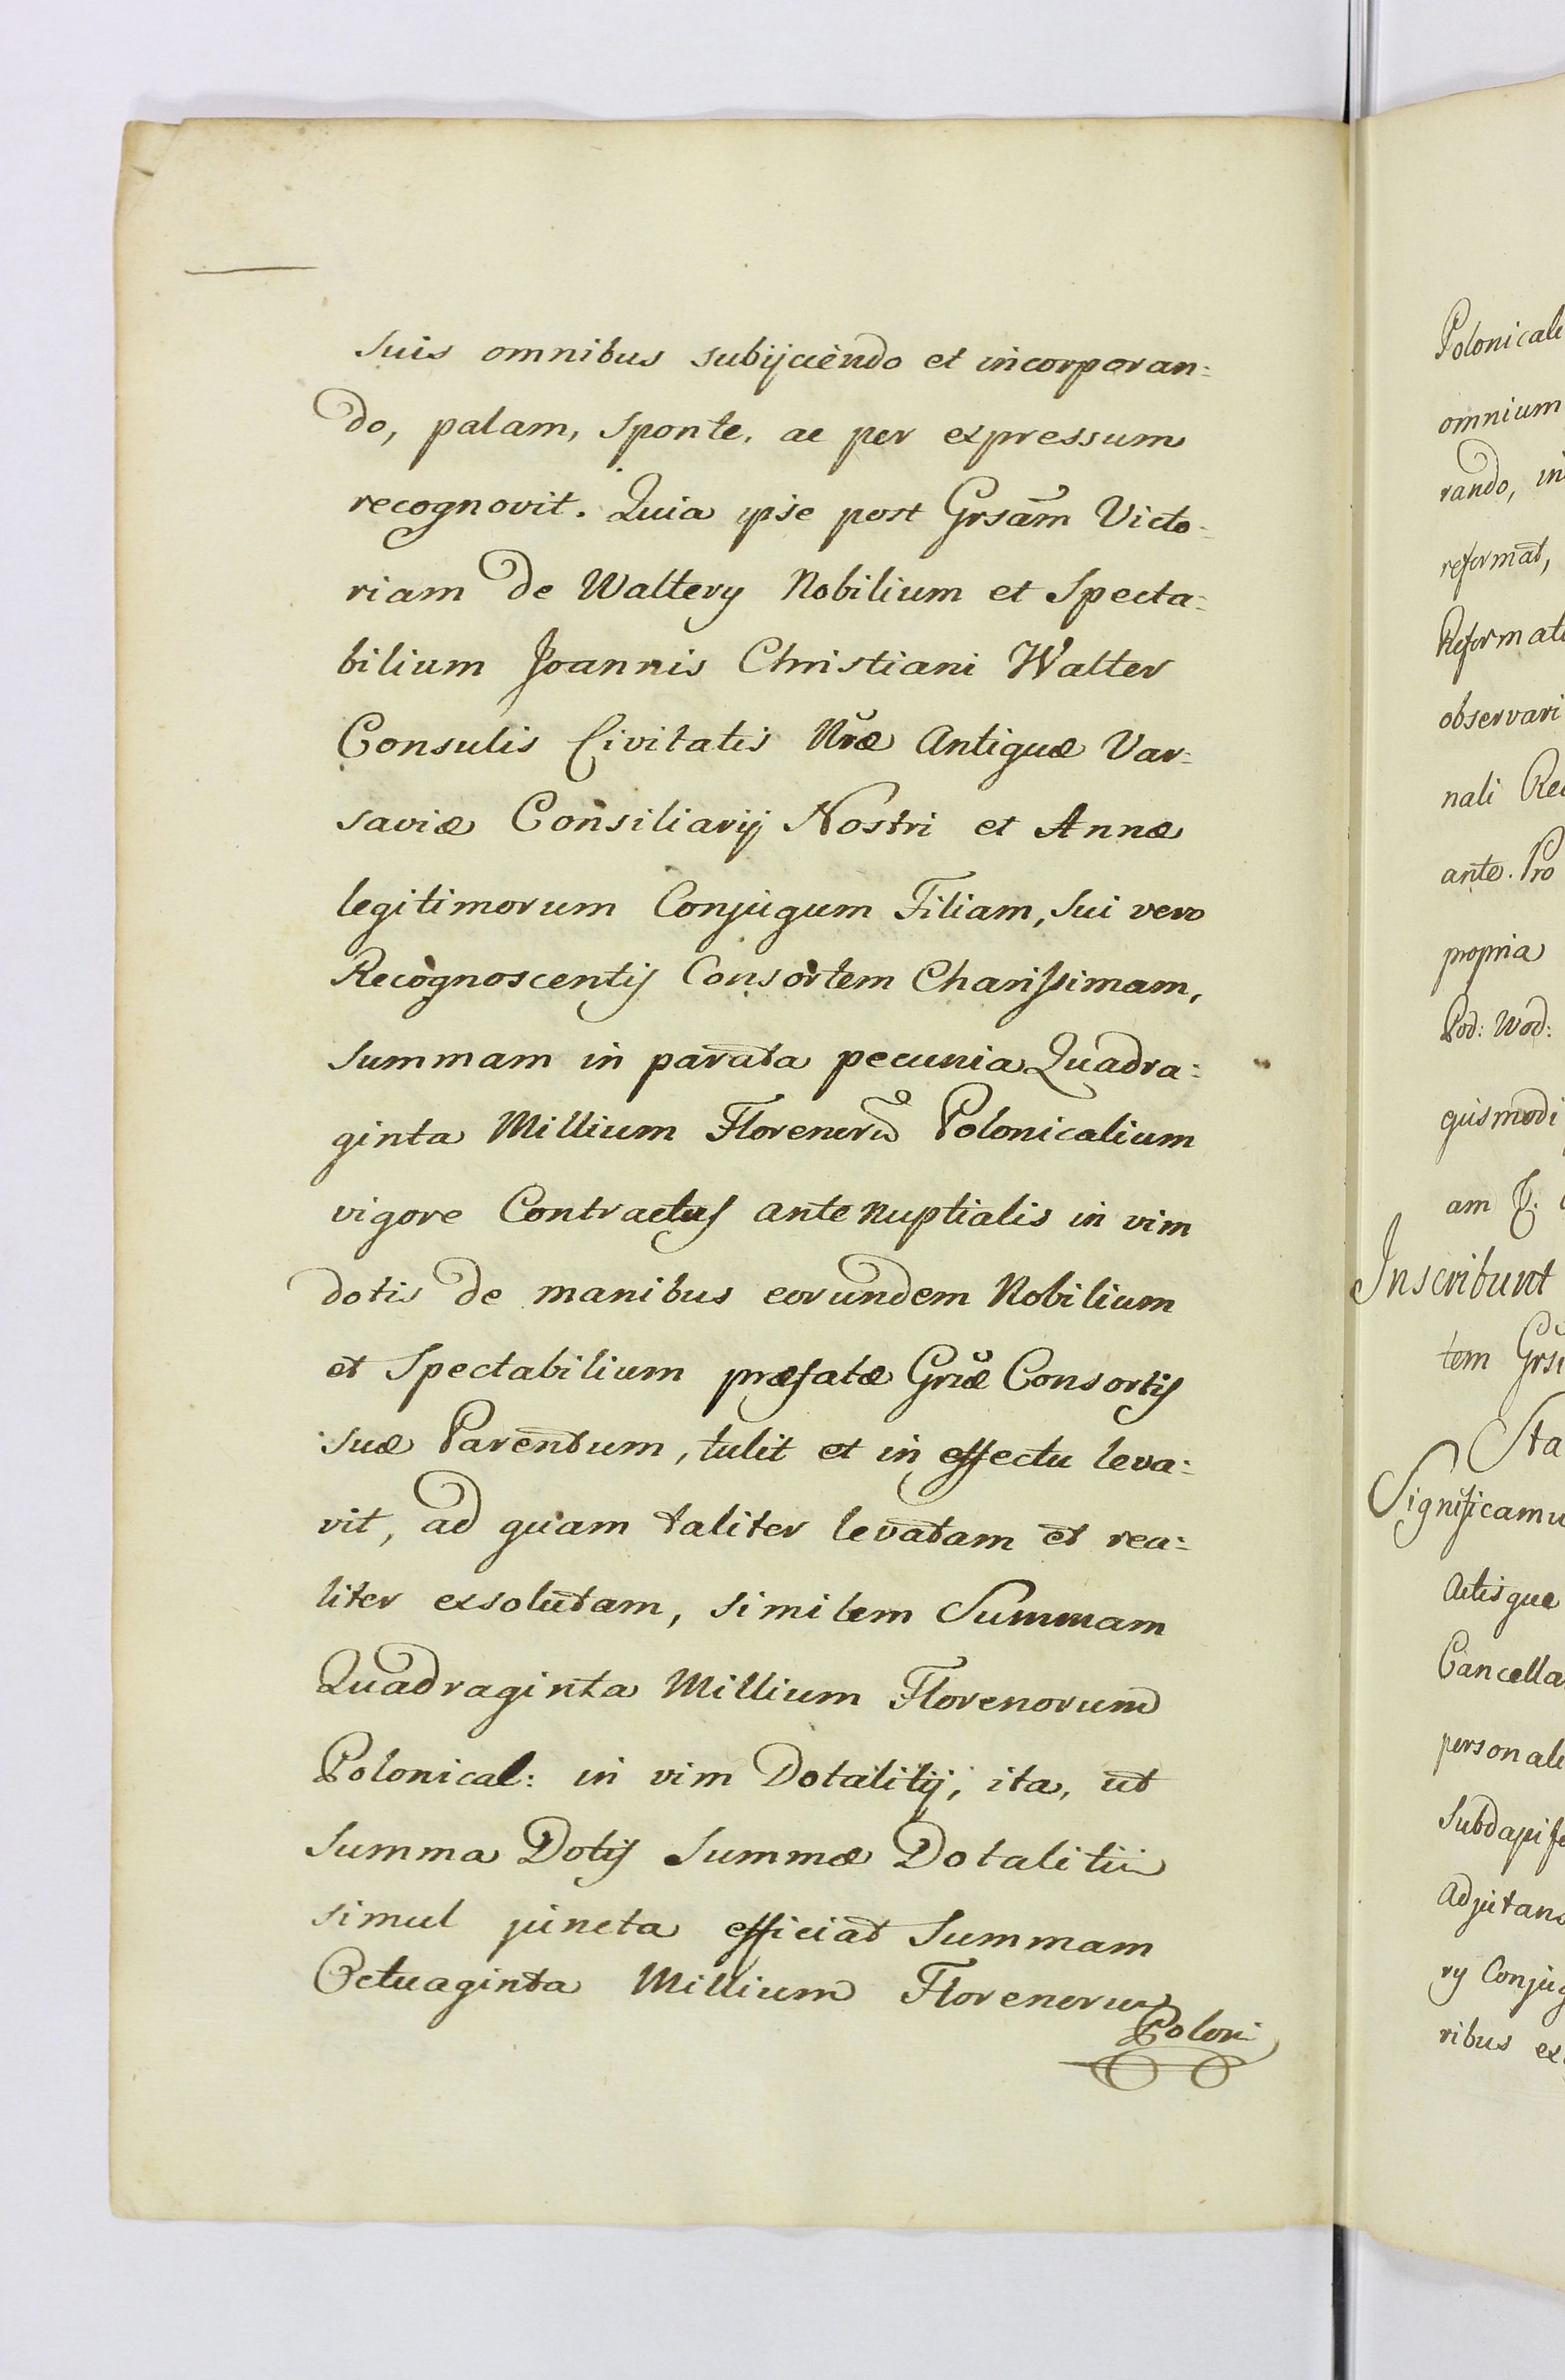 suis omnibus subijciendo et incorporan:
do, palam, sponte, ac per expressum
recognovit. Quia ipse post Grsam Victo:
riam de Waltery Nobilium et Specta:
bilium Joannis Christiani Walter
Consulis Civitatis Nræ Antiquæ Var:
saviæ Consiliarij Nostri et Annæ
legitimorum Conjugum Filiam, sui vero
Recognoscentis Consortem Charissimam,
summam in parata pecunia Quadra:
ginta Millium Florenorū Polonicalium
vigore Contractus antenuptialis in vim
dotis de manibus eorundem Nobilium
et Spectabilium præfatæ Grsæ Consortis
suæ Parentum, tulit et in effectu leva:
vit, ad quam taliter levatam et rea:
liter exsolutam, similem Summam
Quadraginta Millium Florenorum
Polonical: in vim Dotalitij, ita, ut
summa Dotis summæ Dotalitii
simul juncta efficiat Summam
Octuaginta Millium Florenorum
Poloni
Polonicali
omnium
rando, in
reformat,
Reformati
observari
nali Rec
ante. Pro
propria
Pod: Wod:
ejusmodi
am
Inscribunt
tem
Sta
Significamu
Actisque
Cancella
personali
Subdapife
Adjutan
ry Conjug
ribus ex